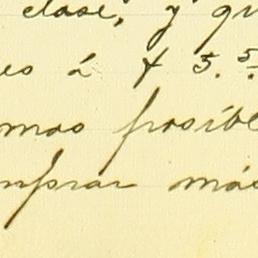 clase, y qu
es á $ 5.5
mas posible
mprar más